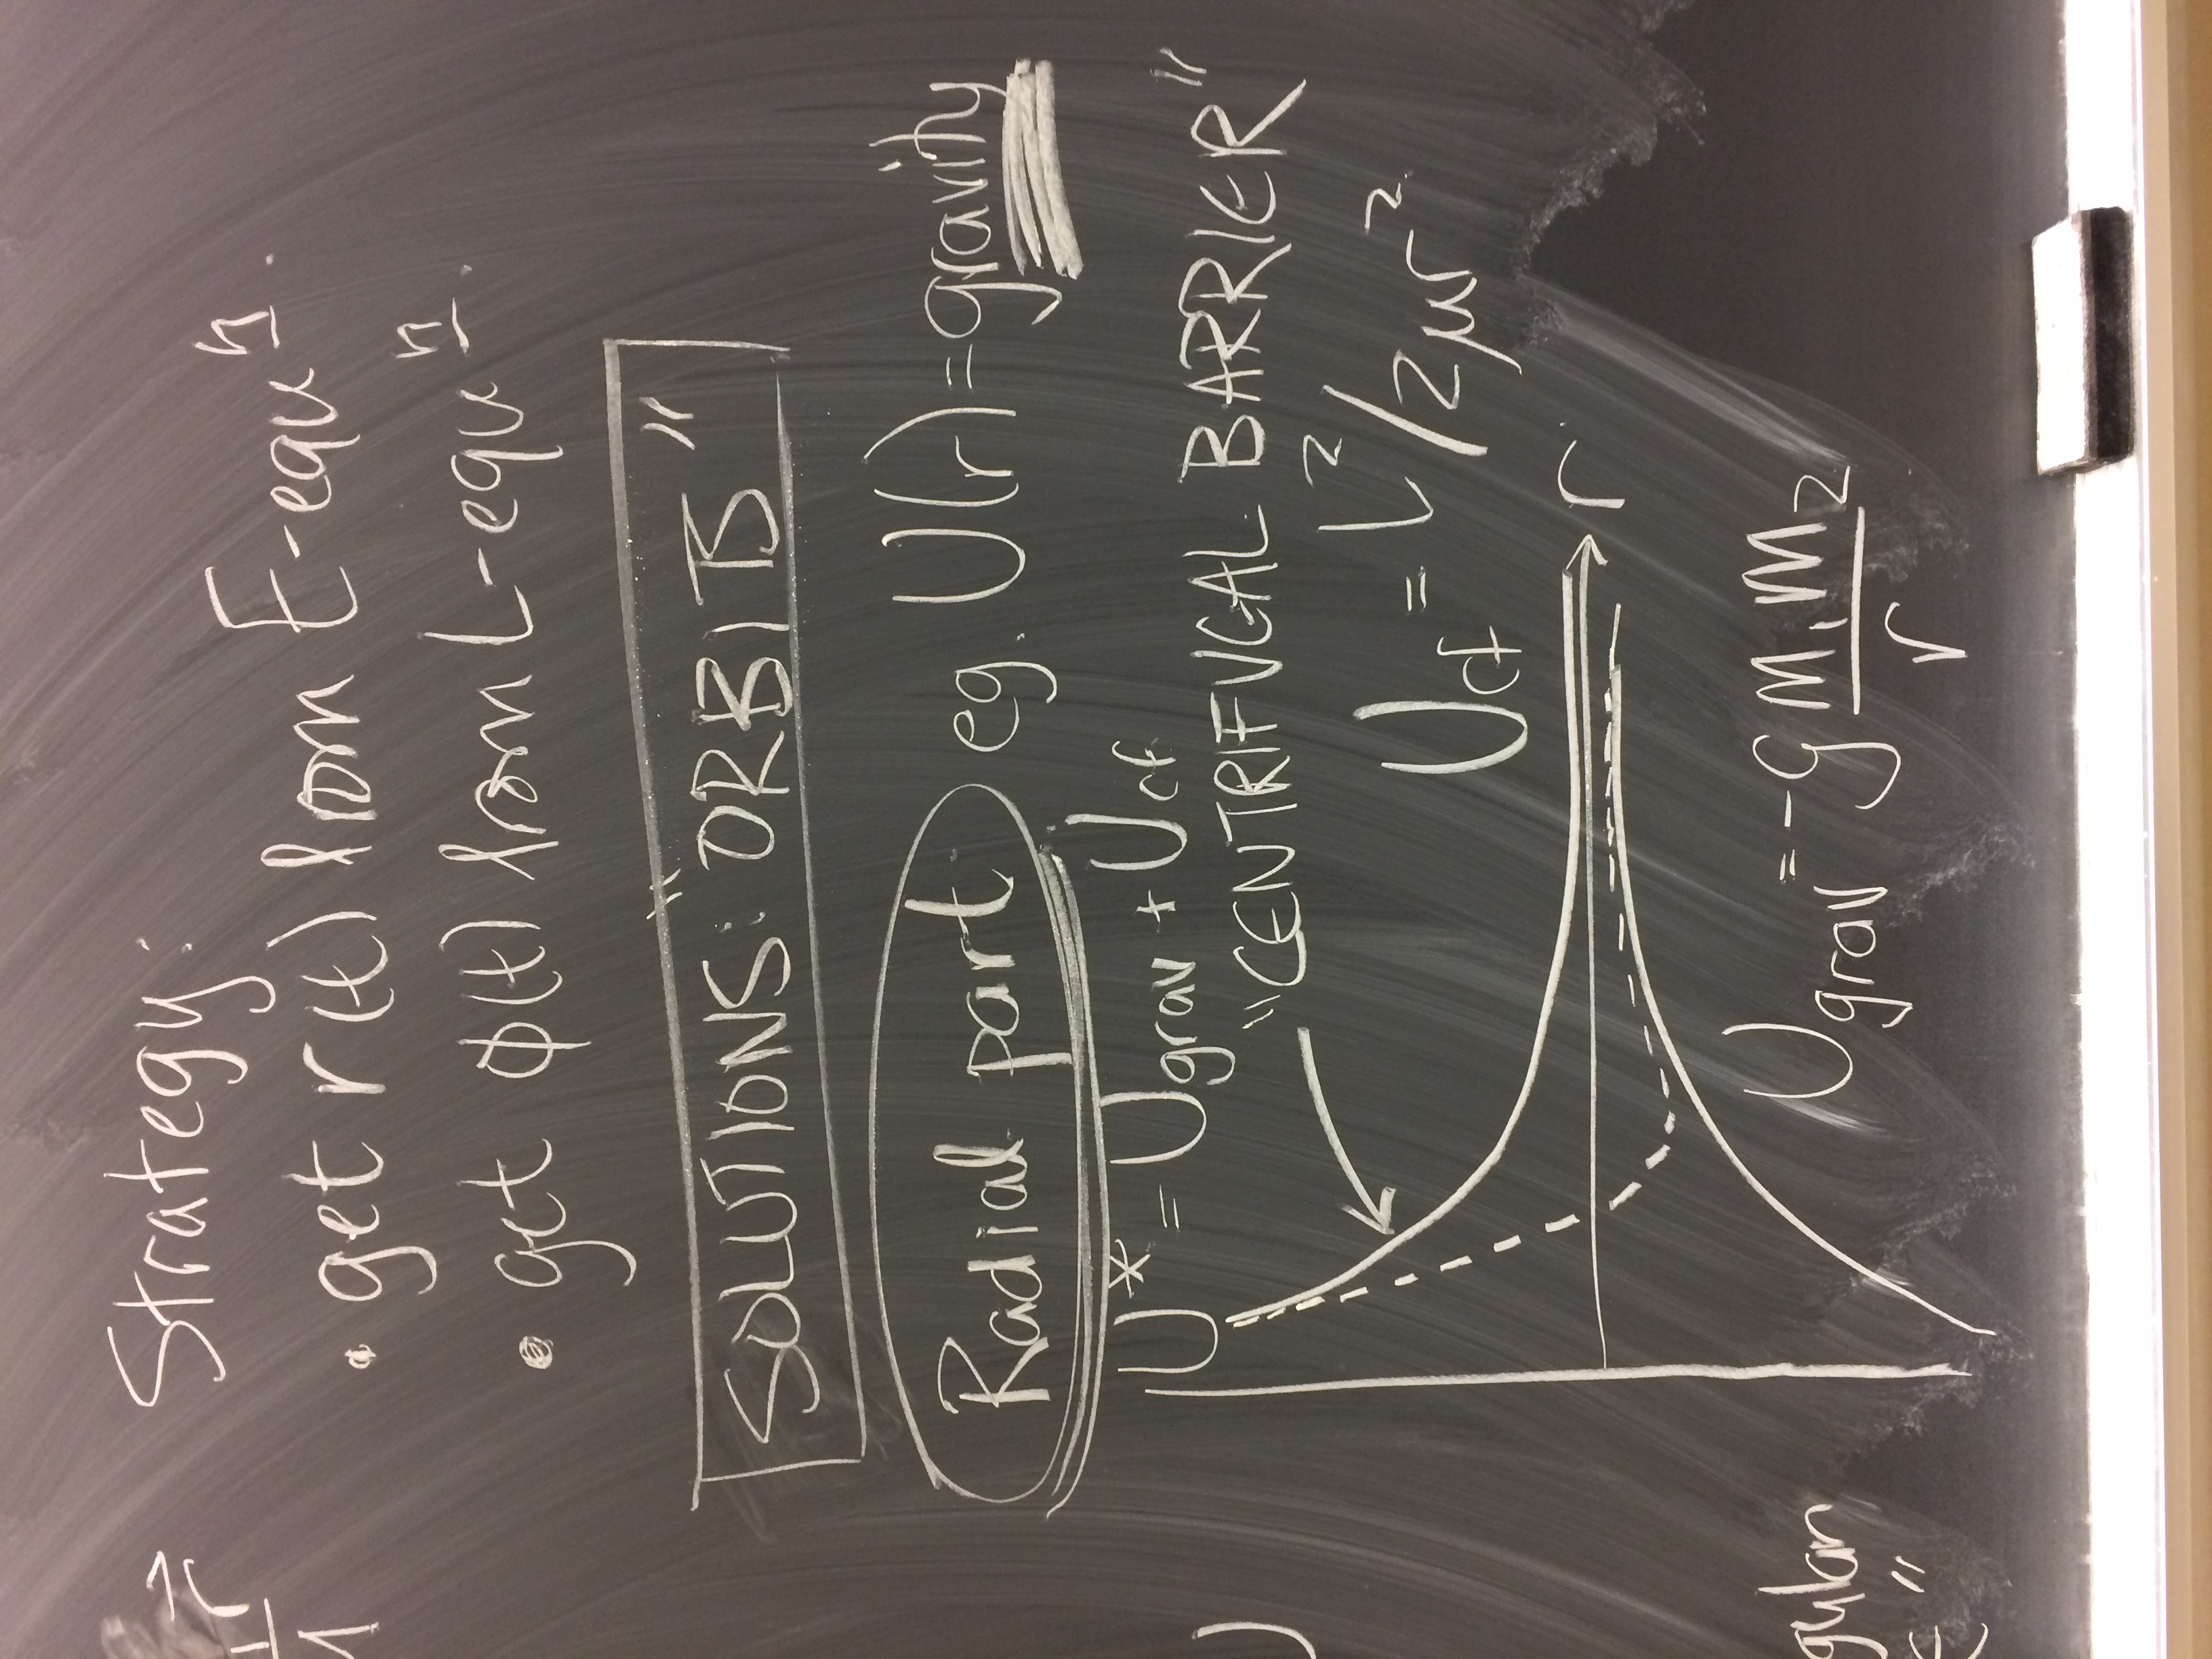 Strategy:
• get r(t) from E-equⁿ.
• get φ(t) from L-equⁿ.
SOLUTIONS: "ORBITS"
Radial part eg. U(r) = gravity
U* = Ugrav + Ucf
"CENTRIFUGAL BARRIER"
Ucf = L²/2μr²
r
Ugrav = -G m₁m₂/r